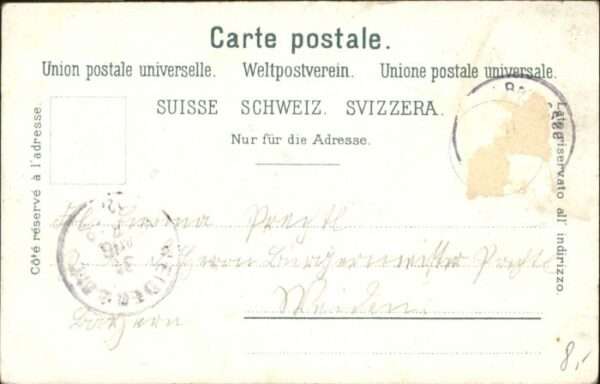 Carte postale.
Union postale universelle. Weltpostverein. Unione postale universale.
SUISSE SCHWEIZ. SVIZZERA.
Nur für die Adresse.
Côté réservé à l'adresse.
Lato riservato all' indirizzo.
Prechtl
Bürgermeister
Weiden
Bayern
8,-